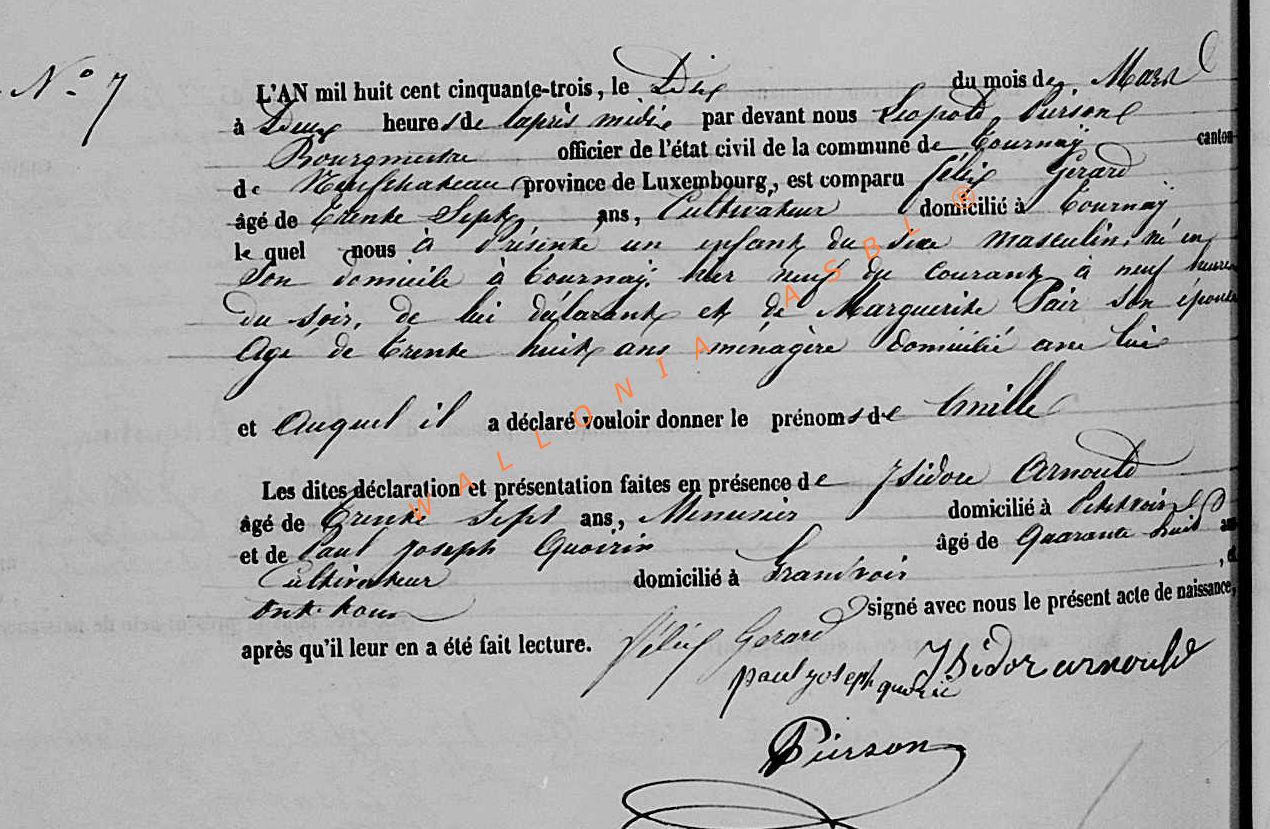 N° 7
L'AN mil huit cent cinquante-trois, le Dix du mois de Mars
à Deux heures de laprès midi par devant nous Leopold Pierson
Bourgmestre officier de l'état civil de la commune de Tournay canton
de Neufchateau province de Luxembourg, est comparu Félix Gérard
âgé de trente Sept ans, Cultivateur domicilié à Tournay
le quel nous à Présenté un enfant du sexe masculin, né en
Son domicile à Tournay, hier neuf du courant, à neuf heures
du soir, de lui déclarant et de Marguerite Pair son épouse
Agé de trente huit ans ménagère domicilié avec lui
et auquel il a déclaré vouloir donner le prénoms de
Les dites déclaration et présentation faites en présence de Isidore Arnould
âgé de trente Sept ans, Menuisier domicilié à Petitvoir
et de Paul Joseph Quoirin âgé de Quarante huit ans
Cultivateur domicilié à Grandvoir
ont tous signé avec nous le présent acte de naissance,
après qu'il leur en a été fait lecture. Félix Gerard
Isidor arnould
paul joseph
Pierson
WALLONIA ASBL ®